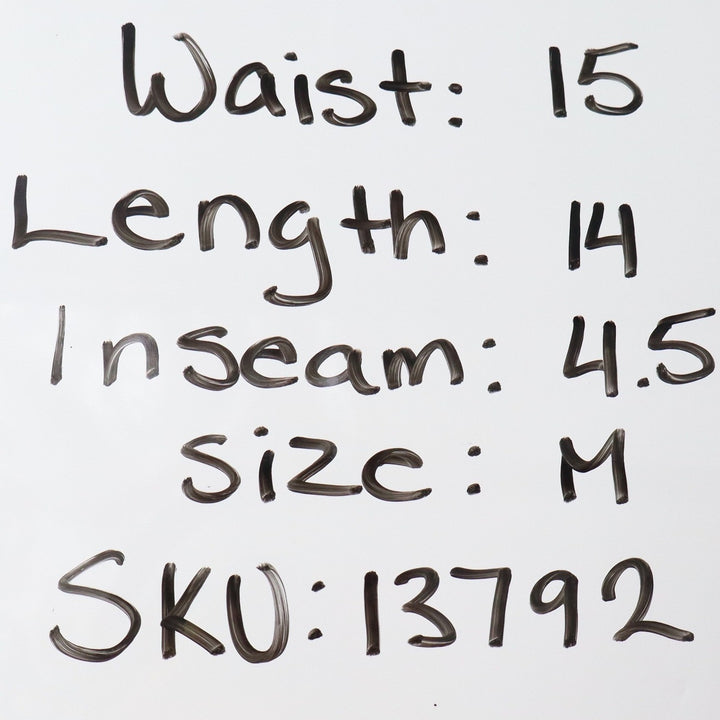 Waist: 15
Length: 14
Inseam: 4.5
Size: M
SKU: 13792